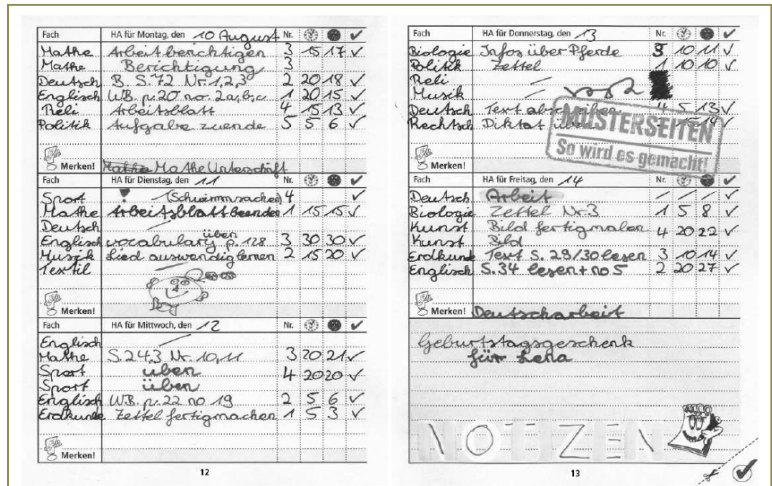 Fach HA für Montag, den 10 August Nr. ✓
Mathe Arbeit berichtigen 3 15 17 ✓
Mathe Berichtigung 3
Deutsch B. S. 72 Nr. 1,2,3 2 20 18 ✓
Englisch WB. p. 20 no. 2a,b,c 1 20 15 ✓
Reli Arbeitsblatt 4 15 13 ✓
Politik Aufgabe zuende 5 5 6 ✓
Merken! Mathe Mathe Unterschrift
Fach HA für Dienstag, den 11 Nr. ✓
Sport (Schwimmsachen) 4 ✓
Mathe Arbeitsblatt beenden 1 15 15 ✓
Deutsch
Englisch vocabulary p. 128 üben 3 30 30 ✓
Musik Lied auswendig lernen 2 15 20 ✓
Textil
Merken!
Fach HA für Mittwoch, den 12 Nr. ✓
Englisch
Mathe S. 243 Nr. 10, 11 3 20 21 ✓
Sport üben 4 20 20 ✓
Sport üben
Englisch WB. p. 22 no 19 2 5 6 ✓
Erdkunde Zettel fertigmachen 1 5 3 ✓
Merken!
12
Fach HA für Donnerstag, den 13 Nr. ✓
Biologie Infos über Pferde 3 10 11 ✓
Politik Zettel 1 10 10 ✓
Reli
Musik
Deutsch Text abschreiben 4 5 13 ✓
Rechtsch Diktat üben 14 ✓
MUSTERSEITEN
So wird es gemacht!
Merken!
Fach HA für Freitag, den 14 Nr. ✓
Deutsch Arbeit ✓
Biologie Zettel Nr. 3 1 5 8 ✓
Kunst Bild fertigmalen 4 20 22 ✓
Kunst Bild
Erdkunde Text S. 29/30 lesen 3 10 14 ✓
Englisch S. 34 lesen + no 5 2 20 27 ✓
Merken! Deutscharbeit
Geburtstagsgeschenk
für Lena
NOTIZEN
13